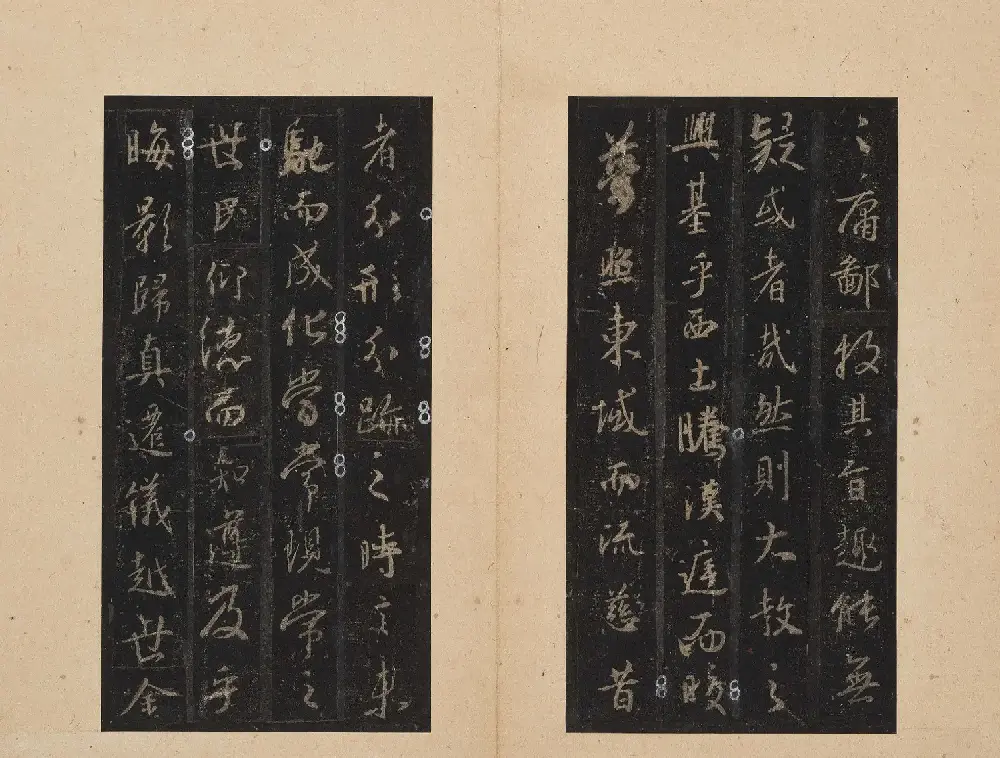 之庸鄙投其旨趣能無
疑或者哉然則大教之
興基乎西土騰漢庭而皎
夢照東域而流慈昔
者分形分跡之時言未
馳而成化當常現常之
世民仰德而知遵及乎
晦影歸真遷儀越世金